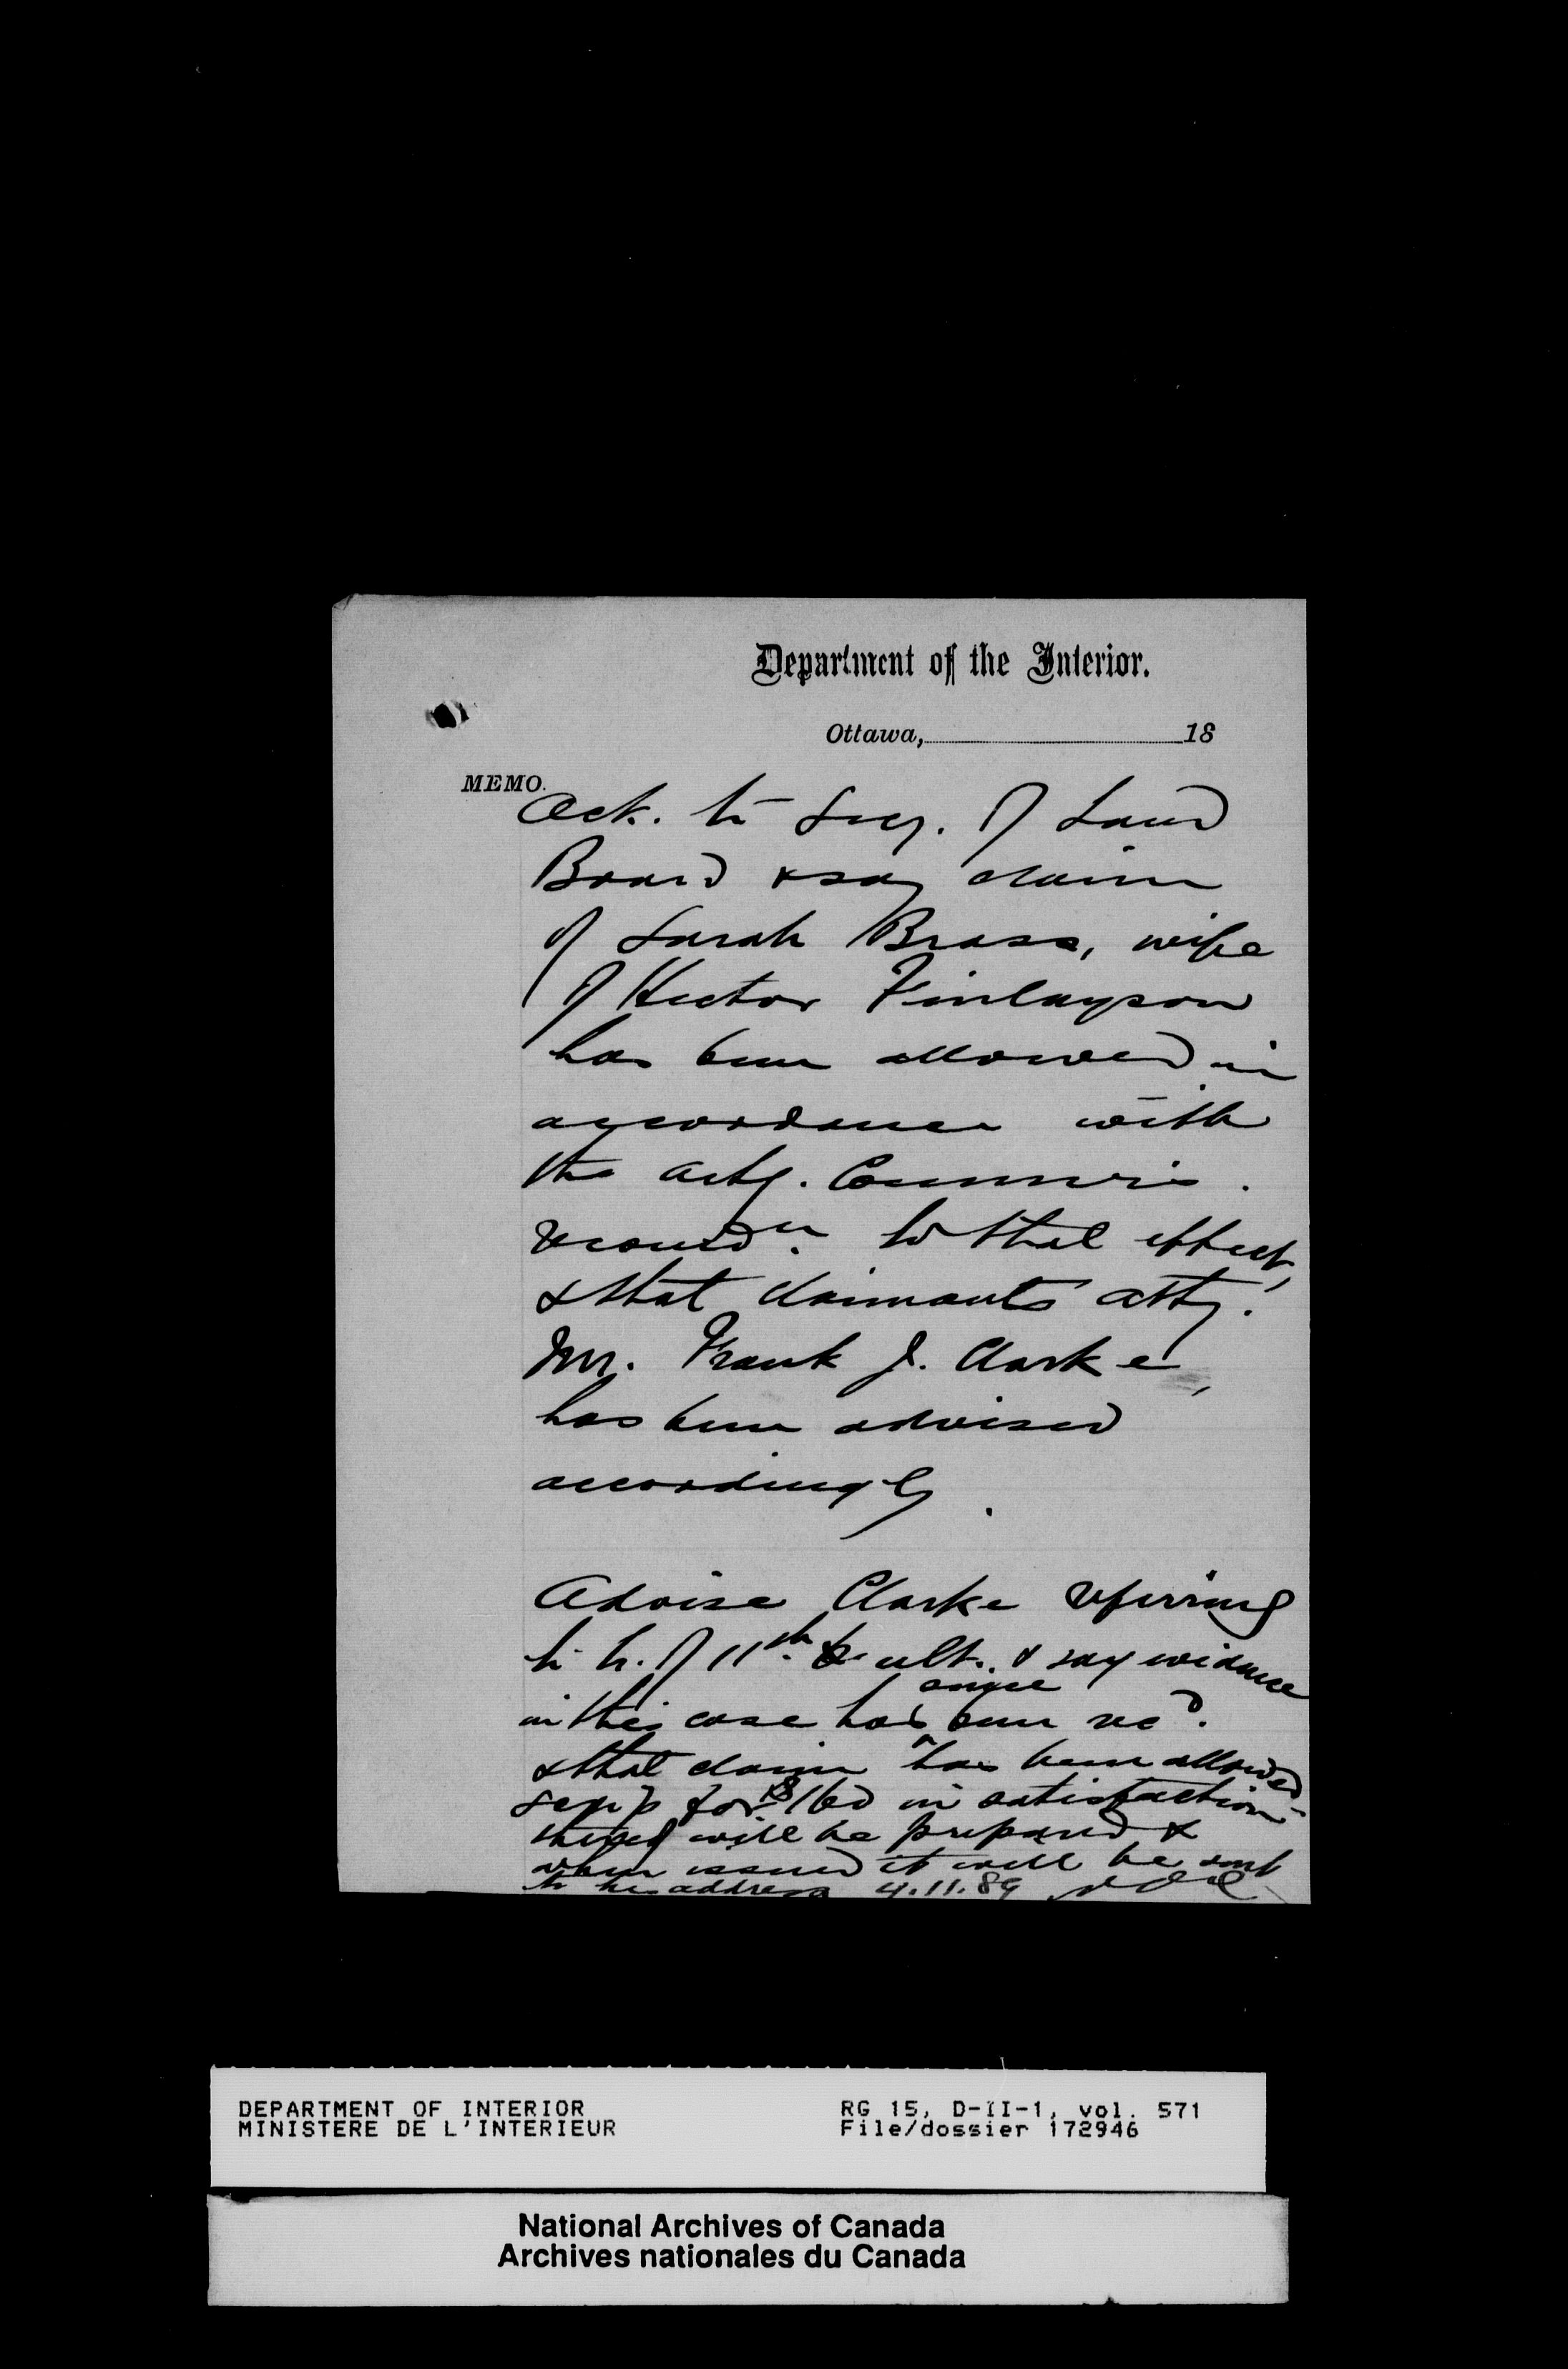 Department of the Interior.
Ottawa, 18
MEMO.
Ack. to Secy. of Land
Board & say claim
of Sarah Brass, wife
of Hector Finlayson
has been allowed in
accordance with
the actg. Commris.
recomdn. to that effect,
& that claimants atty.
Mr. Frank J. Clarke,
has been advised
accordingly.
Advise Clarke referring
to h. of 11th. ult. & say evidence
in this case has since been recd.
& that claim has been allowed
scrip for $160 in satisfaction
thereof will be prepared &
when issued it will be sent
to his address 4.11.89
DEPARTMENT OF INTERIOR
MINISTERE DE L'INTERIEUR
RG 15, D-II-1, vol. 571
File/dossier 172946
National Archives of Canada
Archives nationales du Canada